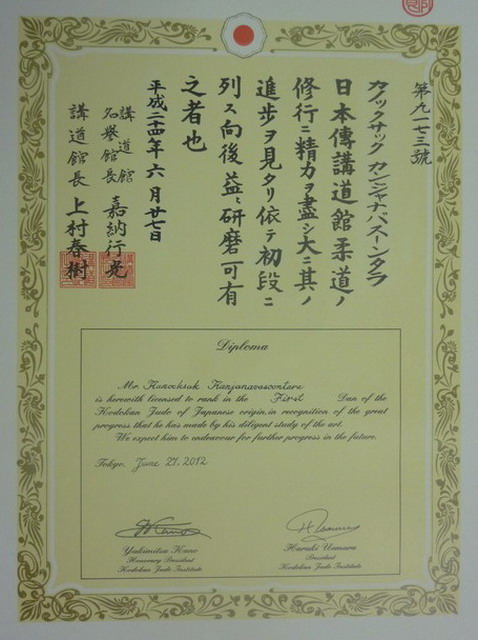 第九一七三號
カノックサック カンジャナバスーンタラ
日本傳講道館柔道ノ
修行ニ精力ヲ盡シ大ニ其ノ
進步ヲ見タリ依テ初段ニ
列ス向後益〻研磨可有
之者也
平成二十四年六月廿七日
講道館
名誉館長 嘉納行光
講道館長 上村春樹
Diploma
Mr. Kanochsak Kanjanavasoontara
is herewith licensed to rank in the First Dan of the
Kodokan Judo of Japanese origin, in recognition of the great
progress that he has made by his diligent study of the art.
We expect him to endeavour for further progress in the future.
Tokyo, June 27, 2012
Yukimitsu Kano
Honorary President
Kodokan Judo Institute
Haruki Uemura
President
Kodokan Judo Institute